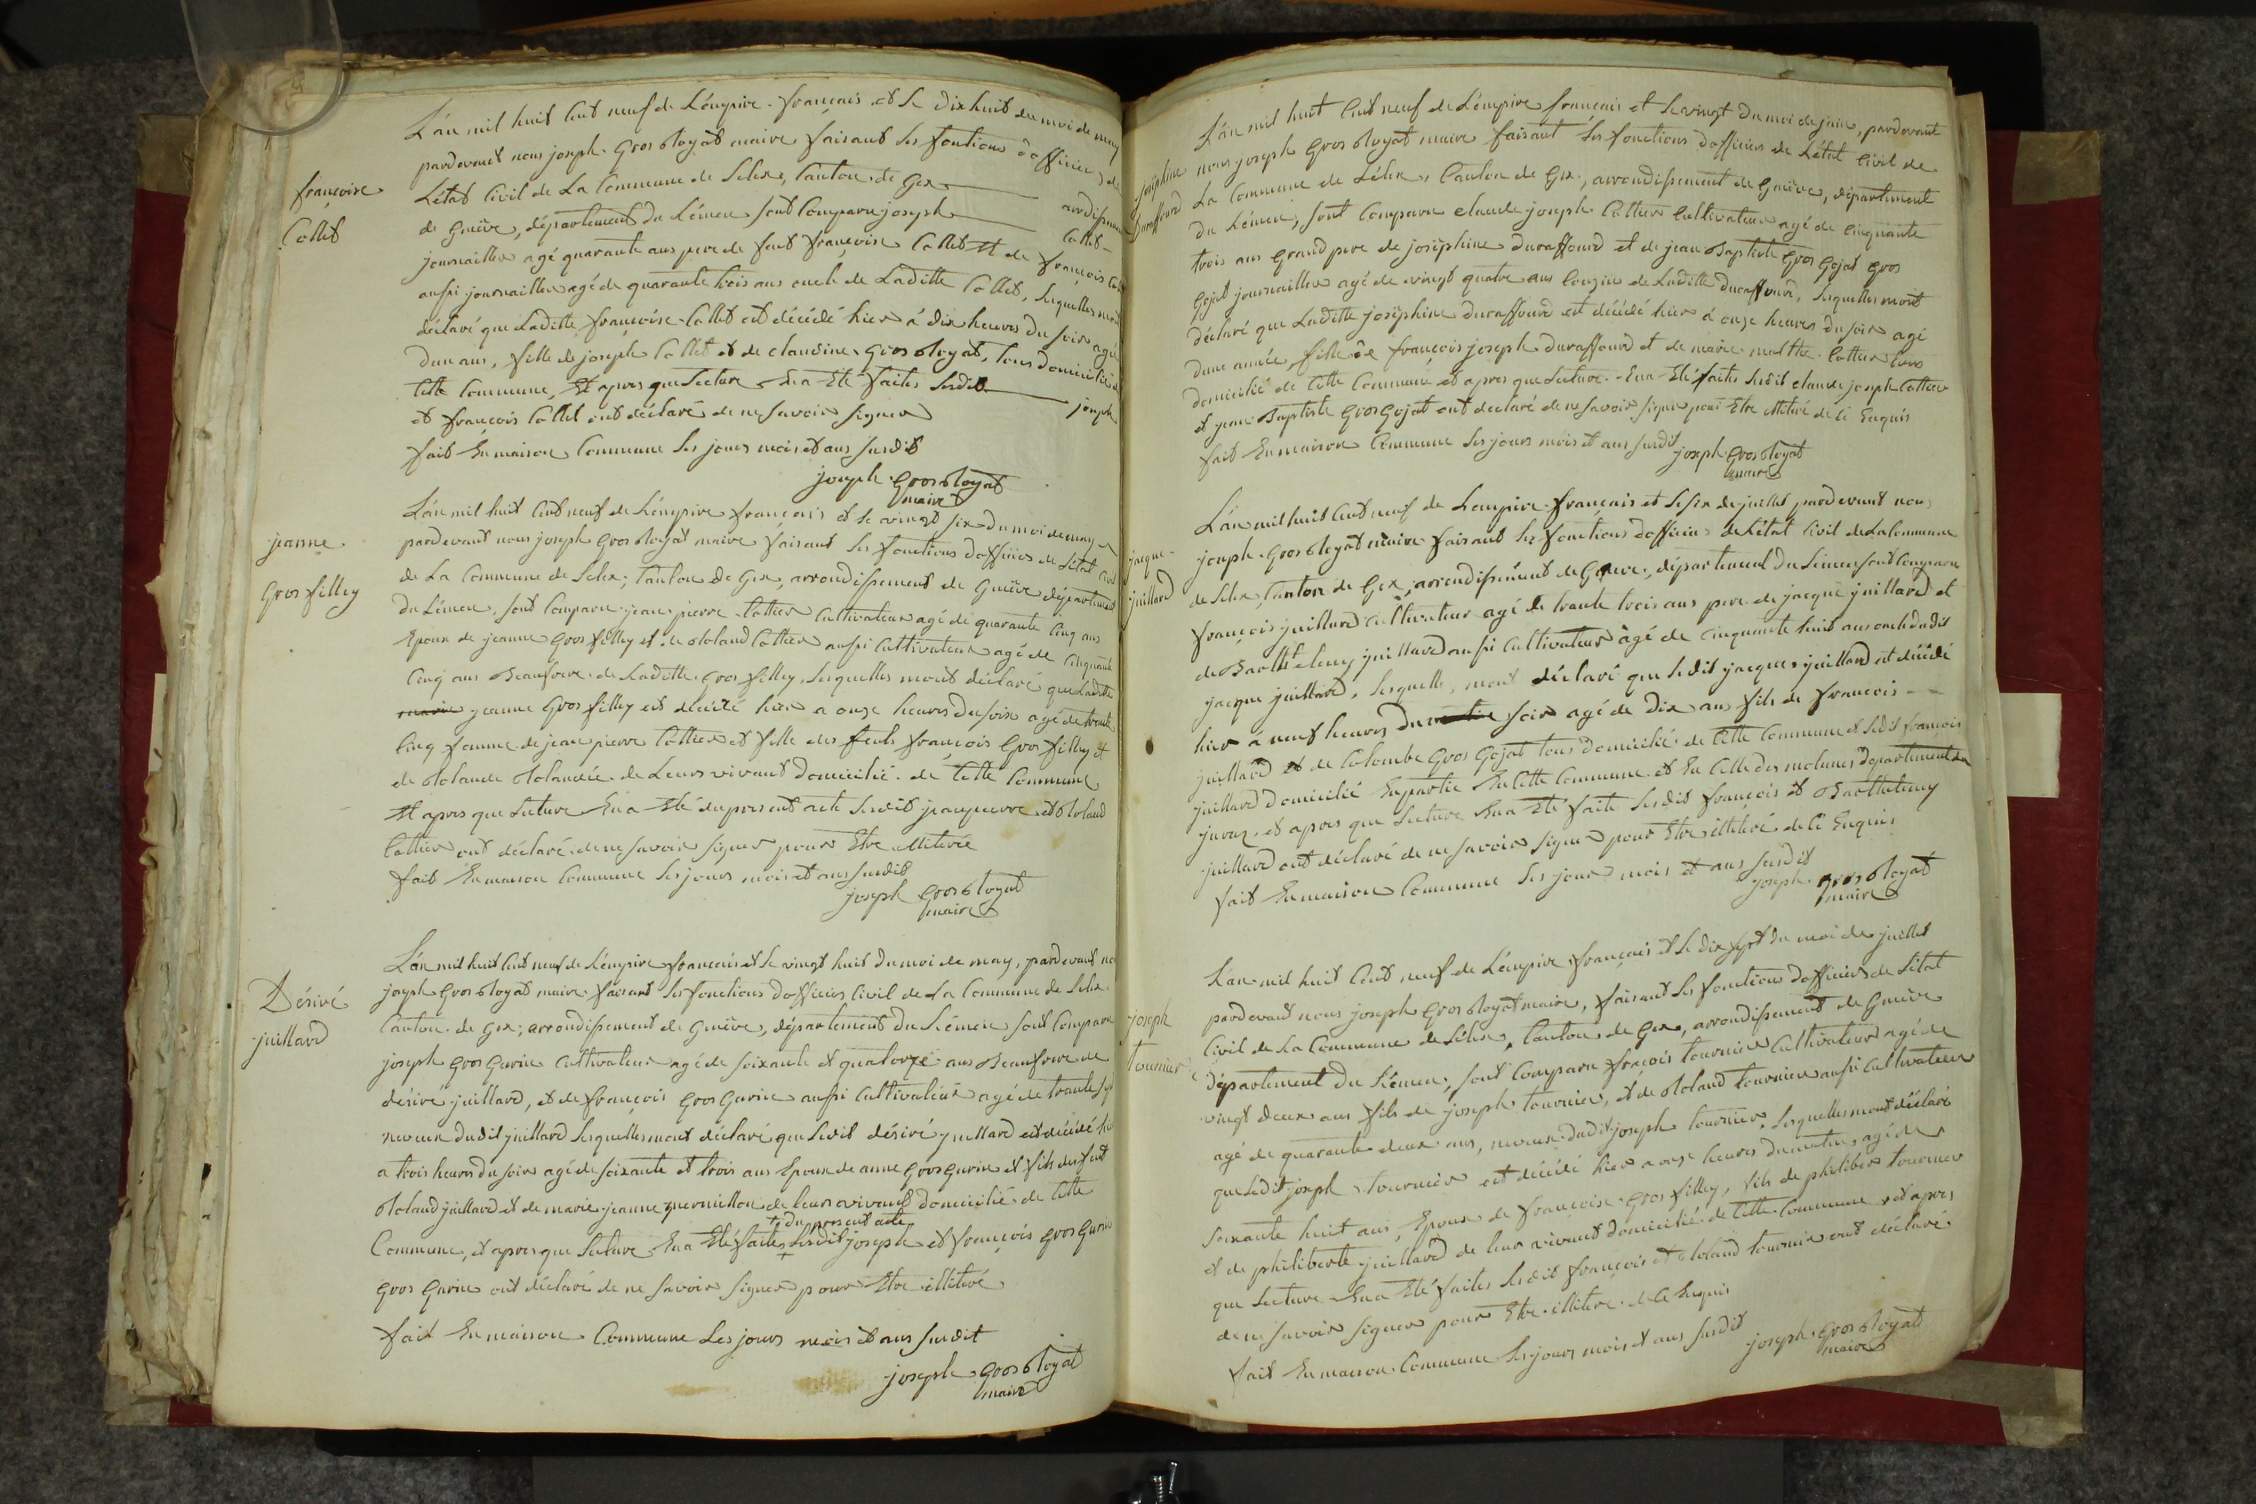 françoise
Collet
L'an mil huit Cent neuf de L'émpire français et le dix huit du moi de may
pardevant nous joseph Gros Royat maire faisant les fontions d'officier de
L'état Civil de La Commune de Lelex, Canton de Gex arrondissement
de Genève, département du Léman, sont Comparu joseph Collet
journaillier agé quarante ans pere de feut françoise Collet et de françois Collet
aussi journaillier agé de quarante trois ans oncle de Laditte Collet, Lesquelles m'ont
déclaré que Laditte françoise Collet est décédé hier à dix heures du soir agé
d'un ans, fille de joseph Collet et de claudine Gros Royat, tous domicilié de
Cette Commune, Et apres que Lecture En a Eté faites Lesdit joseph
et françois Collet ont déclaré de ne savoir signer
fait En maison Commune Les jours mois et ans susdit
joseph Gros Royat
maire
jeanne
Gros filley
L'an mil huit Cent neuf de L'émpire français et le vingt six du moi de may
pardevant nous joseph Gros Royat maire faisant Les fonctions d'officier de L'état Civil
de La Commune de Lelex, Canton de Gex, arrondissement de Genève département
du Léman, sont Comparu jean pierre Cottier Cultivateur agé de quarante Cinq ans
Epoux de jeanne Gros filley et de Roland Cottier aussi Cultivateur agé de Cinquante
Cinq ans Beaufrere de Laditte Gros filley, Lesquelles m'ont déclaré que Laditte
marie jeanne Gros filley est décédé hier a onze heures du soir agé de trente
Cinq femme de jean pierre Cottier et fille des feuts françois Gros filley et
de Rolande Rolandée de Leurs vivant domicilié de Cette Commune
Et apres que Lecture En a Eté du present acte Lesdit jeanpierre et Roland
Cottier ont déclaré de ne savoir signer pour Etre illiterée
fait En maison Commune Les jours mois et ans susdit
joseph Gros Royat
maire
Désiré
juillard
L'an mil huit Cent neuf de L'émpire français et le vingt huit du moi de may, pardevant nous
joseph Gros Royat maire faisant Les fonctions d'officier Civil de La Commune de Lelex
Canton de Gex; arrondissement de Genève, département du Léman sont Comparu
joseph Gros Gurin Cultivateur agé de soixante et quatorze ans Beaufrere de
désiré juillard, et de françois Gros Gurin aussi Cultivateur agé de trente sept
neveux dudit juillard Lesquelles m'ont déclaré que Ledit désiré juillard est décédé hier
a trois heures du soir agé de soixante et trois ans Epoux de anne Gros Gurin et fils des feut
Roland juillard et de marie jeanne de leurs vivant domicilié de Cette
Commune, et apres que Lecture En a Eté faites + du present acte Lesdit joseph et françois Gros Gurin
Gros Gurin ont déclaré de ne savoir signer pour Etre illiteré
fait En maison Commune Les jours mois et ans susdit
joseph Gros Royat
maire
joséphine
Duraffourd
L'an mil huit Cent neuf de L'émpire français et le vingt du moi de juin, pardevant
nous joseph Gros Royat maire faisant Les fonctions d'officier de L'état Civil de
La Commune de Lélex, Canton de Gex, arrondissement de Genève, département
du Léman, sont Comparu claude joseph Cottier Cultivateur agé de Cinquante
trois ans grand pere de joséphine duraffourd et de jean Baptiste Gros Gojat Gros
Gojat journaillier agé de vingt quatre ans Cousin de Laditte duraffourd, Lesquelles m'ont
déclaré que Laditte joséphine duraffourd est décédé hier à onze heures du soir agé
d'une année, fille de françois joseph duraffourd et de marie marthe Cottier tous
domicilié de Cette Commune et apres que Lecture En a Eté faites Lesdit claude joseph Cottier
et jean Baptiste Gros Gojat ont declaré de ne savoir signer pour Etre illiteré de Ce Enquis
fait En maison Commune Les jours mois et ans susdit joseph Gros Royat
maire
jacque
juillard
L'an mil huit Cent neuf de L'empire français et le six de juillet pardevant nous
joseph Gros Royat maire faisant Les fonctions d'officier de L'état Civil de La Commune
de Lelex, Canton de Gex, arrondissement de Genève, département du Léman sont Comparu
françois juillard Cultivateur agé de trente trois ans pere de jacque juillard et
de Barthelemy juillard aussi Cultivateur agé de Cinquante huit ans oncle dudit
jacque juillard, Lesquelles, m'ont déclaré que Ledit jacque juillard est décédé
hier a neuf heures du matin soir agé de dix ans fils de françois
juillard et de Colombe Gros Gojat tous domicilié de Cette Commune et Ledit françois
juillard domicilié En partie En Cette Commune et En Celle des molunes département du
jura, et apres que Lecture En a Eté faite Lesdit françois et Barthelemy
juillard ont déclaré de ne savoir signer pour Etre illiteré de Ce Enquis
fait En maison Commune Les jour mois et ans susdit
joseph Gros Royat
maire
joseph
Tournier
L'an mil huit Cent neuf de L'émpire français et Le dix sept du moi de juillet
pardevant nous joseph Gros Royat maire, faisant Les fonction d'officier de L'état
Civil de La Commune de Lélex, Canton de Gex, arrondissement de Genève
département du Léman, sont Comparu françois tournier Cultivateur agé de
vingt deux ans fils de joseph tournier, et de Roland tournier aussi Cultivateur
agé de quarante deux ans, neveux dudit joseph tournier, Lesquelles m'ont déclaré
que Ledit joseph tournier est décédé hier a onze heures du matin agé de
soixante huit ans, Epoux de françoise Gros filley, fils de philiber tournier
et de philiberte juillard de leur vivant domicilié de Cette Commune et apres
que Lecture En a Eté faites Lesdit françois et Roland tournier ont déclaré
de ne savoir signer pour Etre illiteré de Ce Enquis
fait En maison Commune Les jours mois et ans susdit
joseph Gros Royat
maire